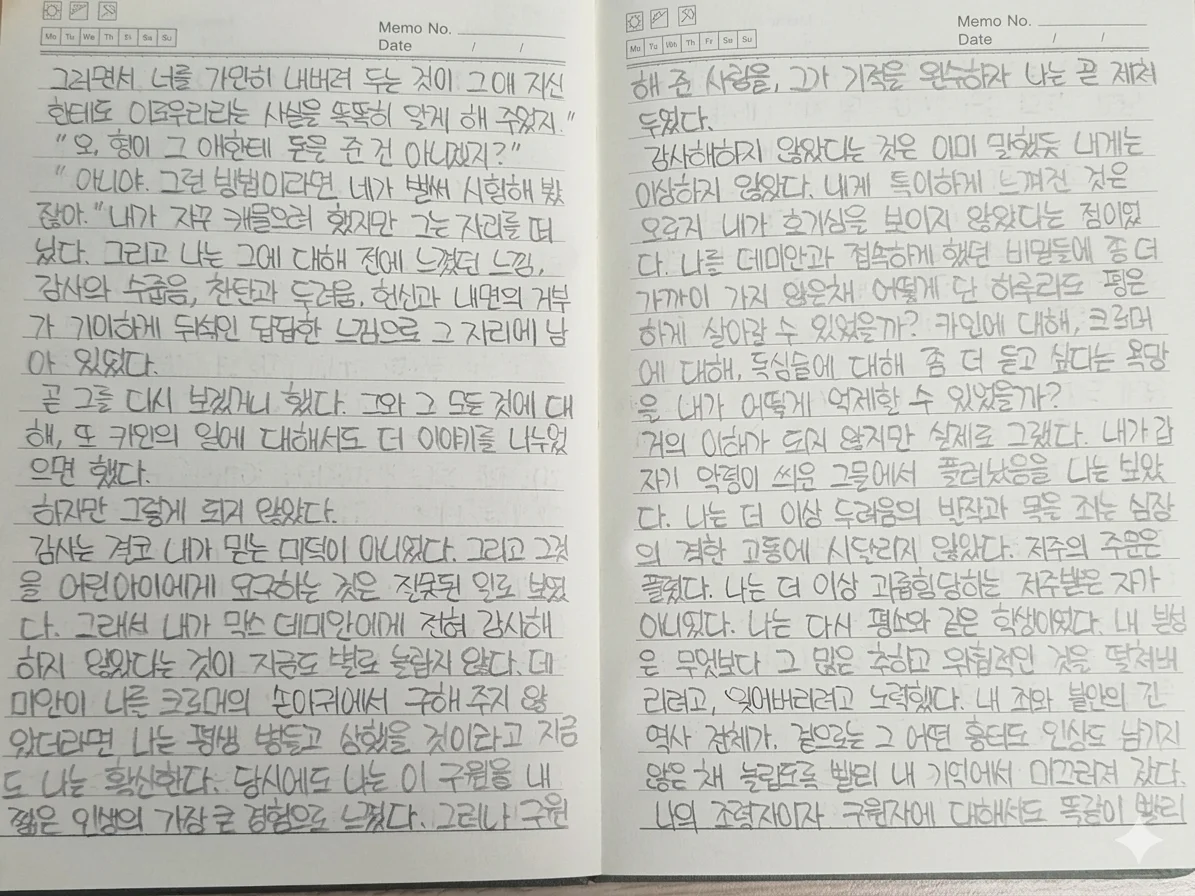 Memo No.
Mo Tu We Th Fr Sa Su
Date / /
그러면서 너를 가만히 내버려 두는 것이 그애 자신
한테도 이로우리라는 사실을 똑똑히 알게 해 주었지."
"오, 형이 그 애한테 돈을 준 건 아니겠지?"
"아니야. 그런 방법이라면 네가 벌써 시험해 봤
잖아." 내가 자꾸 캐물으려 했지만 그는 자리를 떠
났다. 그리고 나는 그에 대해 전에 느꼈던 느낌,
감사와 수줍음, 찬탄과 두려움, 헌신과 내면의 거부
가 기이하게 뒤섞인 답답한 느낌으로 그 자리에 남
아 있었다.
곧 그를 다시 보겠거니 했다. 그와 그 모든 것에 대
해, 또 카인의 일에 대해서도 더 이야기를 나누었
으면 했다.
하지만 그렇게 되지 않았다.
감사는 결코 내가 믿는 미덕이 아니었다. 그리고 그것
을 어린아이에게 요구하는 것은 잘못된 일로 보였
다. 그래서 내가 막스 데미안에게 전혀 감사해
하지 않았다는 것이 지금도 별로 놀랍지 않다. 데
미안이 나를 크로머의 손아귀에서 구해 주지 않
았더라면 나는 평생 병들고 상했을 것이라고 지금
도 나는 확신한다. 당시에도 나는 이 구원을 내
짧은 인생의 가장 큰 경험으로 느꼈다. 그러나 구원
Memo No.
Mu Tu Wen Th Fr Sa Su
Date / /
해 준 사람을, 그가 기적을 완수하자 나는 곧 제쳐
두었다.
감사해하지 않았다는 것은 이미 말했듯 내게는
이상하지 않았다. 내게 특이하게 느껴진 것은
오로지 내가 호기심을 보이지 않았다는 점이었
다. 나를 데미안과 접속하게 했던 비밀들에 좀 더
가까이 가지 않은채 어떻게 단 하루라도 평온
하게 살아갈 수 있었을까? 카인에 대해, 크로머
에 대해, 독심술에 대해 좀 더 듣고 싶다는 욕망
을 내가 어떻게 억제할 수 있었을까?
거의 이해가 되지 않지만 실제로 그랬다. 내가 갑
자기 악령이 씌운 그물에서 풀려났음을 나는 보았
다. 나는 더 이상 두려움의 발작과 목을 죄는 심장
의 격한 고동에 시달리지 않았다. 저주의 주문은
풀렸다. 나는 더 이상 괴롭힘당하는 저주받은 자가
아니었다. 나는 다시 평소와 같은 학생이었다. 내 본성
은 무엇보다 그 많은 추하고 위험적인 것을 떨쳐버
리려고, 잊어버리려고 노력했다. 내 죄와 불안의 긴
역사 전체가. 겉으로는 그 어떤 흉터도 인상도 남기지
않은 채 놀랍도록 빨리 내 기억에서 미끄러져 갔다.
나의 조력자이자 구원자에 대해서도 똑같이 빨리